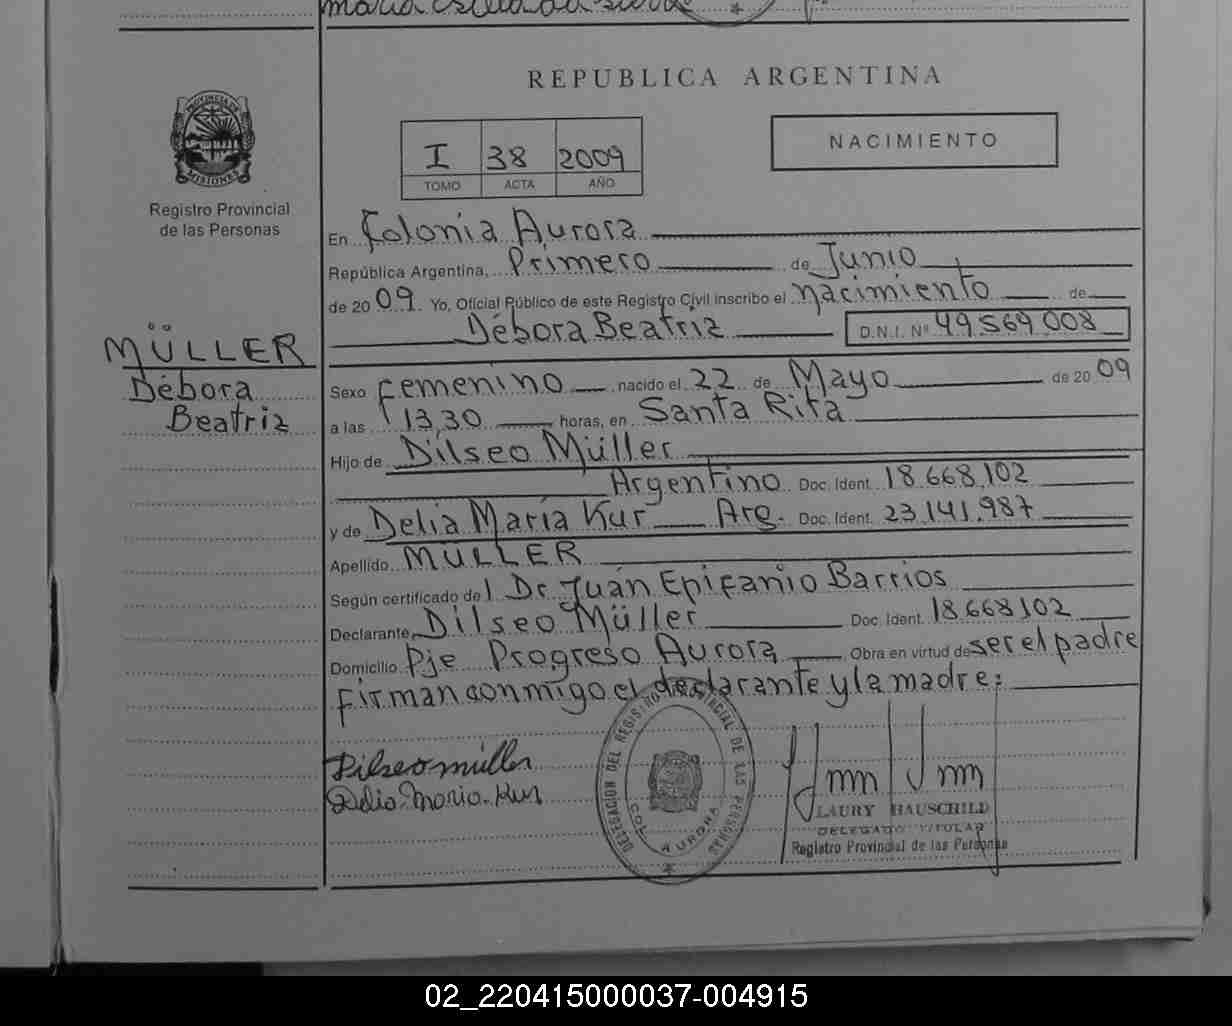 REPUBLICA ARGENTINA
PROVINCIA DE
MISIONES
Registro Provincial
de las Personas
I 38 2009
TOMO ACTA AÑO
NACIMIENTO
En Colonia Aurora
República Argentina, Primero de Junio
de 2009. Yo, Oficial Público de este Registro Civil inscribo el nacimiento de
Débora Beatriz D.N.I. Nº 49.569.008
MÜLLER
Débora
Beatriz
Sexo femenino nacido el 22 de Mayo de 2009
a las 13,30 horas, en Santa Rita
Hijo de Dilseo Müller
Argentino Doc. Ident. 18.668.102
y de Delia María Kur Arg. Doc. Ident. 23.141.987
Apellido MÜLLER
Según certificado del Dr. Juán Epifanio Barrios
Declarante Dilseo Müller Doc. Ident. 18.668.102
Domicilio Pje Progreso Aurora Obra en virtud de ser el padre
firman conmigo el declarante y la madre:
Dilseo müller
Delia Maria Kur
DELEGACION DEL REGISTRO PROVINCIAL DE LAS PERSONAS
COL. AURORA
LAURY HAUSCHILD
DELEGADO TITULAR
Registro Provincial de las Personas
02_220415000037-004915